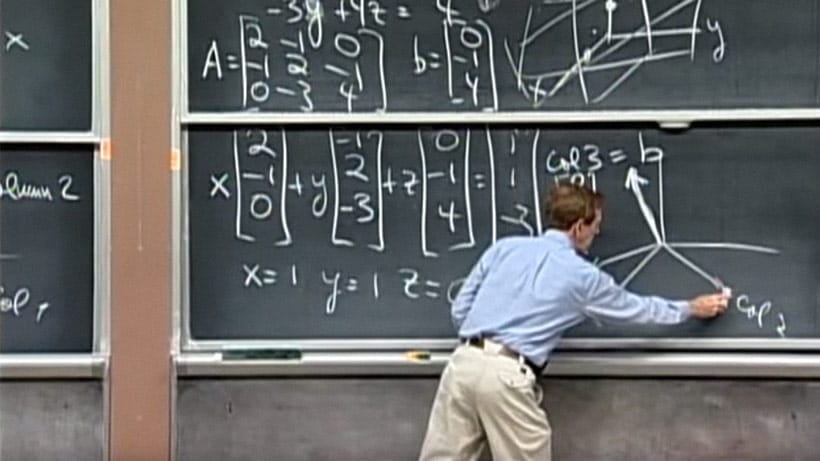 x
olumn 2
col 1
-3y + 4z = 4
A = [2 -1 0; -1 2 -1; 0 -3 4] b = [0; -1; 4]
y
x
x [2; -1; 0] + y [-1; 2; -3] + z [0; -1; 4] = [1; 1; -3]
x = 1 y = 1 z =
col 3 = b
col 2